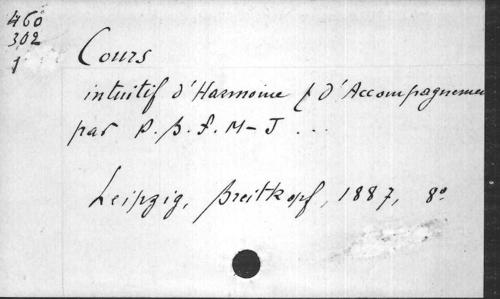 460
302
1
Cours
intuitif d'Harmonie & d'Accompagnemen
par P. B. F. M-J ...
Leipzig, Breitkopf, 1887, 8º